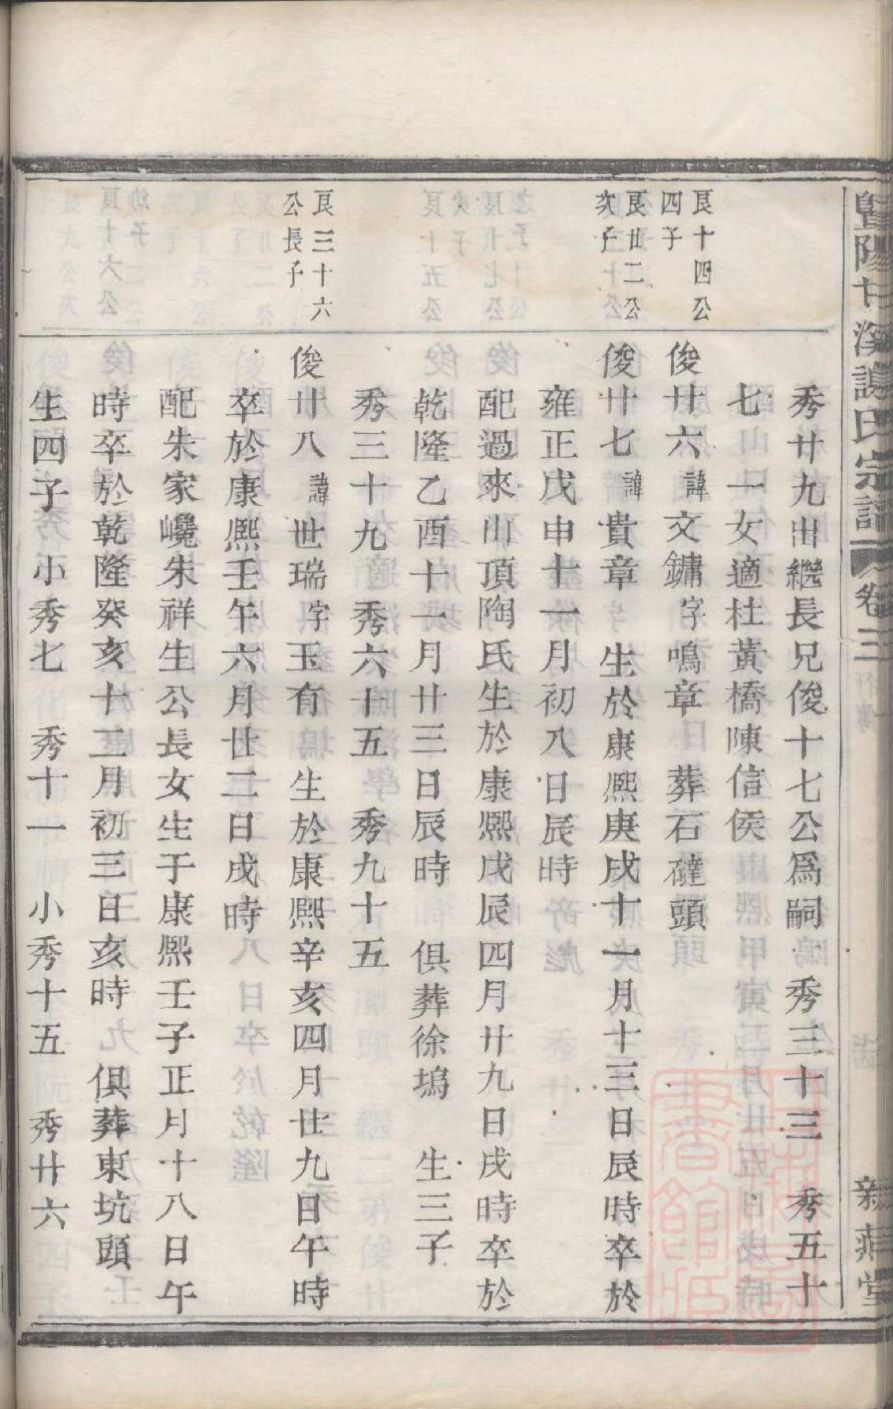 暨陽廿溪謝氏宗譜 卷三 行傳
秀廿九出繼長兄俊十七公爲嗣 秀三十三 秀五十
七 一女適杜黃橋陳信侯
良十四公
四子
俊廿六諱文鏞字鳴章 葬石礶頭
良廿二公
次子
俊廿七諱貴章 生於康熙庚戌十一月十三日辰時卒於
雍正戊申十一月初八日辰時
配過來山頂陶氏生於康熙戊辰四月廿九日戌時卒於
乾隆乙酉十一月廿三日辰時 俱葬徐塢 生三子
秀三十九 秀六十五 秀九十五
良三十六
公長子
俊廿八諱世瑞字玉有 生於康熙辛亥四月廿九日午時
卒於康熙壬午六月廿二日戌時
配朱家巉朱祥生公長女生于康熙壬子正月十八日午
時卒於乾隆癸亥十二月初三日亥時 俱葬東坑頭
生四子 小秀七 秀十一 小秀十五 秀廿六